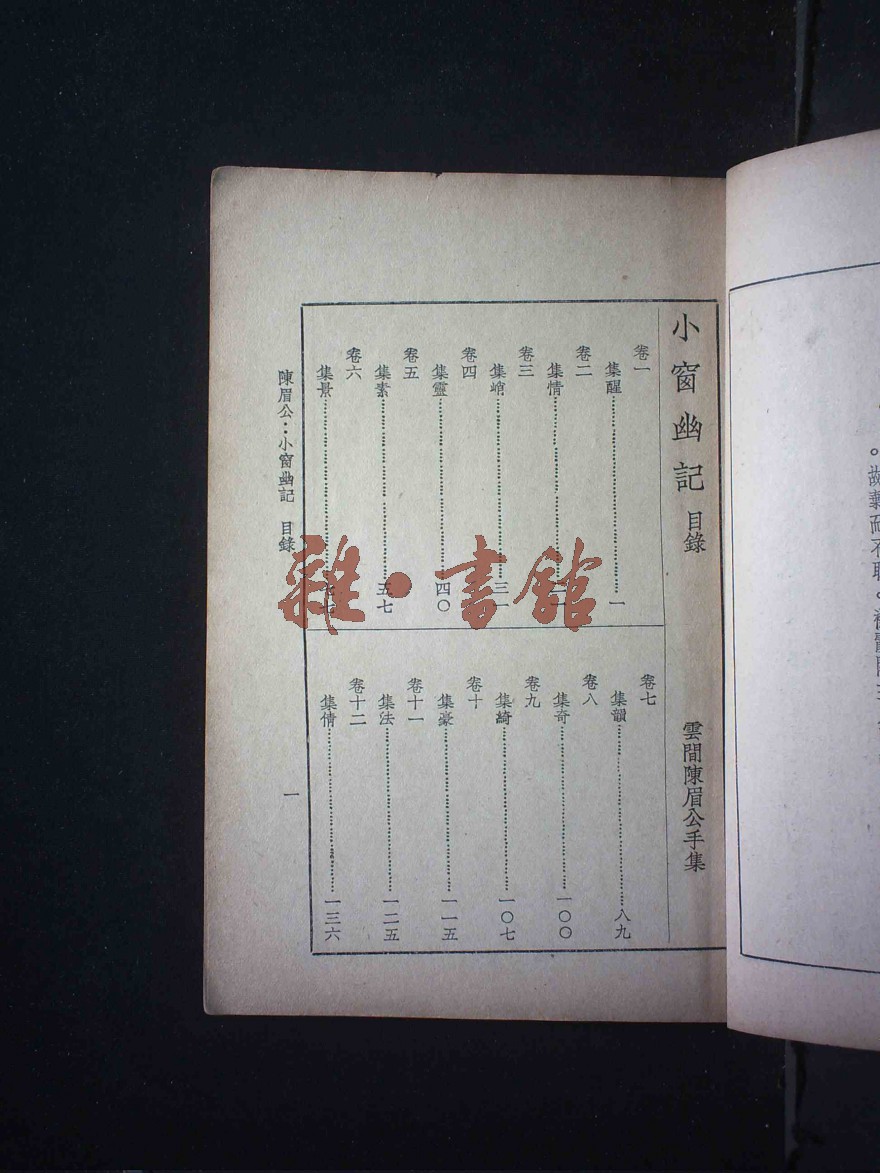 小窗幽記 目錄
雲間陳眉公手集
卷一
集醒……一
卷二
集情……
卷三
集峭……三一
卷四
集靈……四〇
卷五
集素……五七
卷六
集景……七七
卷七
集韻……八九
卷八
集奇……一〇〇
卷九
集綺……一〇七
卷十
集豪……一一五
卷十一
集法……一二五
卷十二
集倩……一三六
陳眉公：小窗幽記 目錄
一
雜·書館